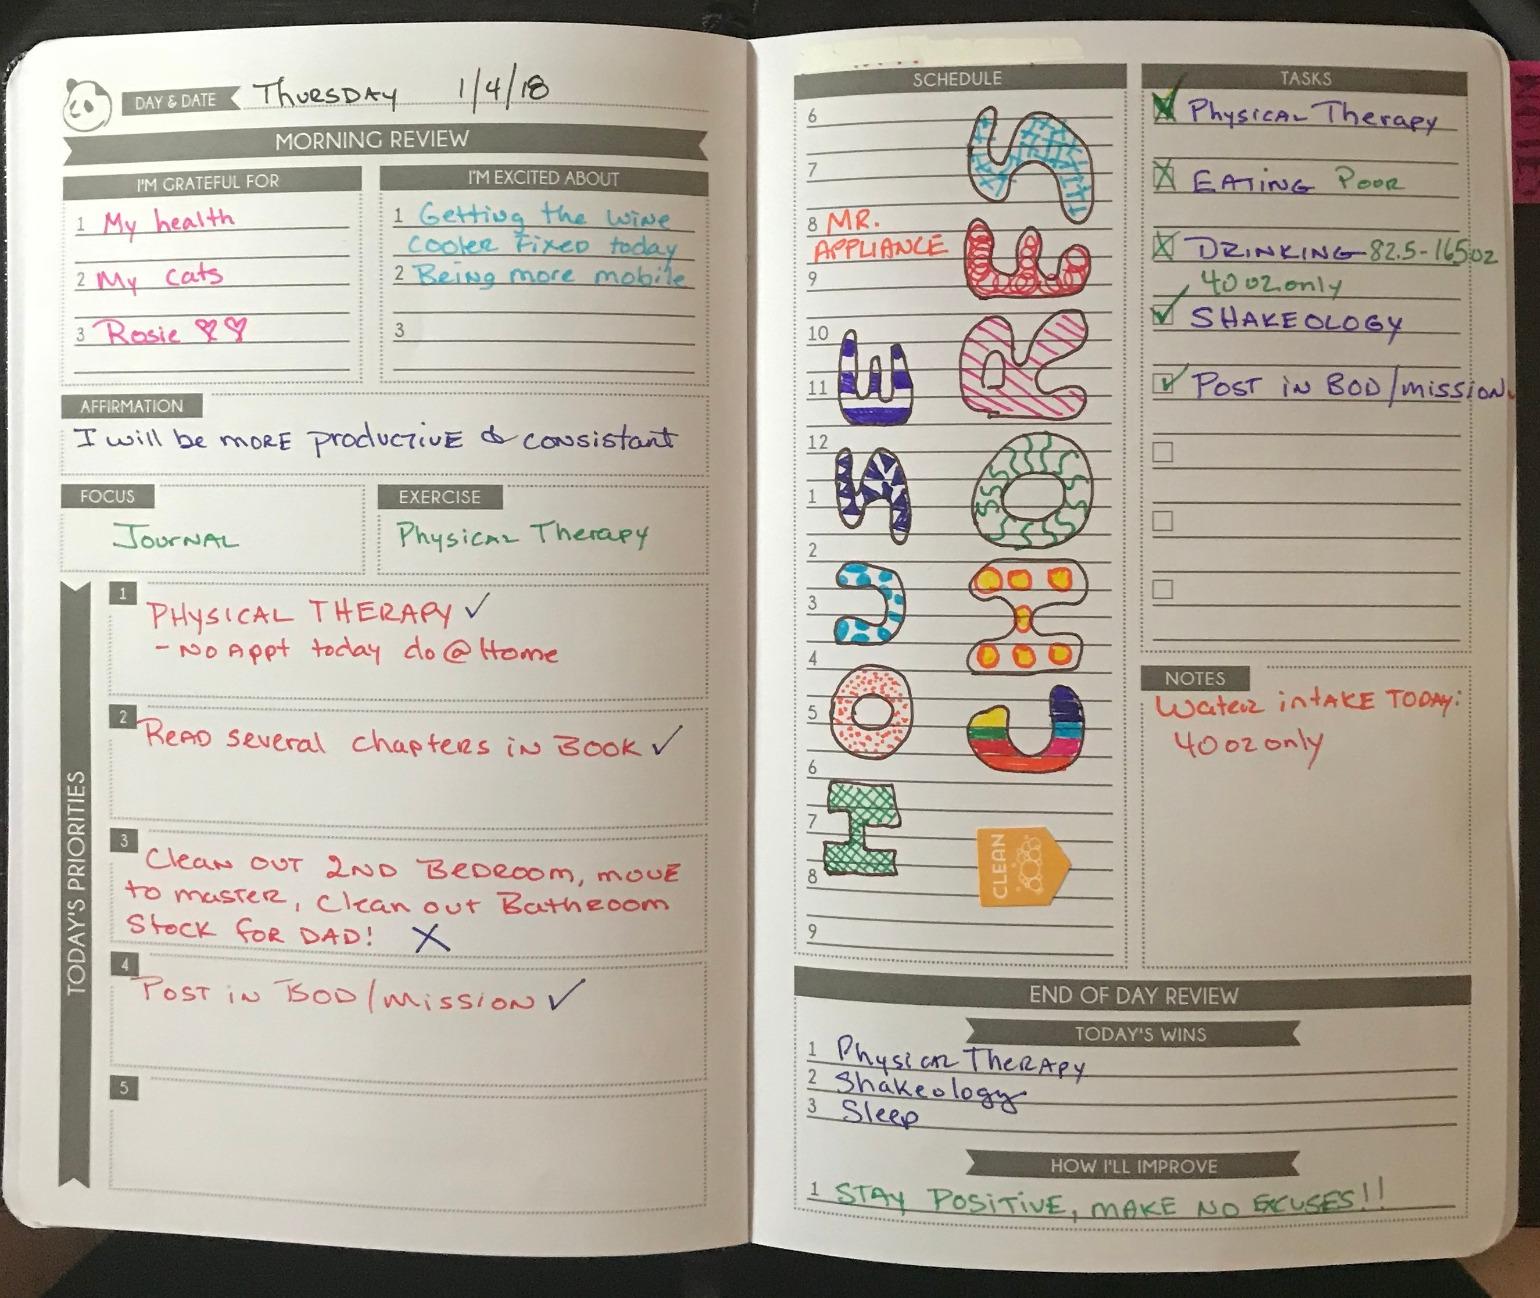 DAY & DATE THURSDAY 1/4/18
MORNING REVIEW
I'M GRATEFUL FOR
1 My health
2 My cats
3 Rosie
I'M EXCITED ABOUT
1 Getting the wine
cooler Fixed today
2 Being more mobile
3
AFFIRMATION
I will be MORE productive & consistant
FOCUS
JOURNAL
EXERCISE
Physical Therapy
TODAY'S PRIORITIES
1
PHYSICAL THERAPY ✓
- NO Appt today do @ Home
2
READ several chapters in BOOK ✓
3
Clean OUT 2ND BEDROOM, MOVE
to master, Clean out Bathroom
Stock for DAD! X
4
POST in BOD/mission ✓
5
SCHEDULE
6
7
8 MR.
APPLIANCE
9
10
11
12
1
2
3
4
5
6
7
8
9
HOUSE
CHORES
CLEAN
TASKS
Physical Therapy
EATING POOR
DRINKING - 82.5 - 165 oz
40 oz only
SHAKEOLOGY
POST in BOD/mission
NOTES
Water intAKE TODAY:
40 oz only
END OF DAY REVIEW
TODAY'S WINS
1 Physical Therapy
2 Shakeology
3 Sleep
HOW I'LL IMPROVE
1 STAY POSITIVE, MAKE NO EXCUSES!!